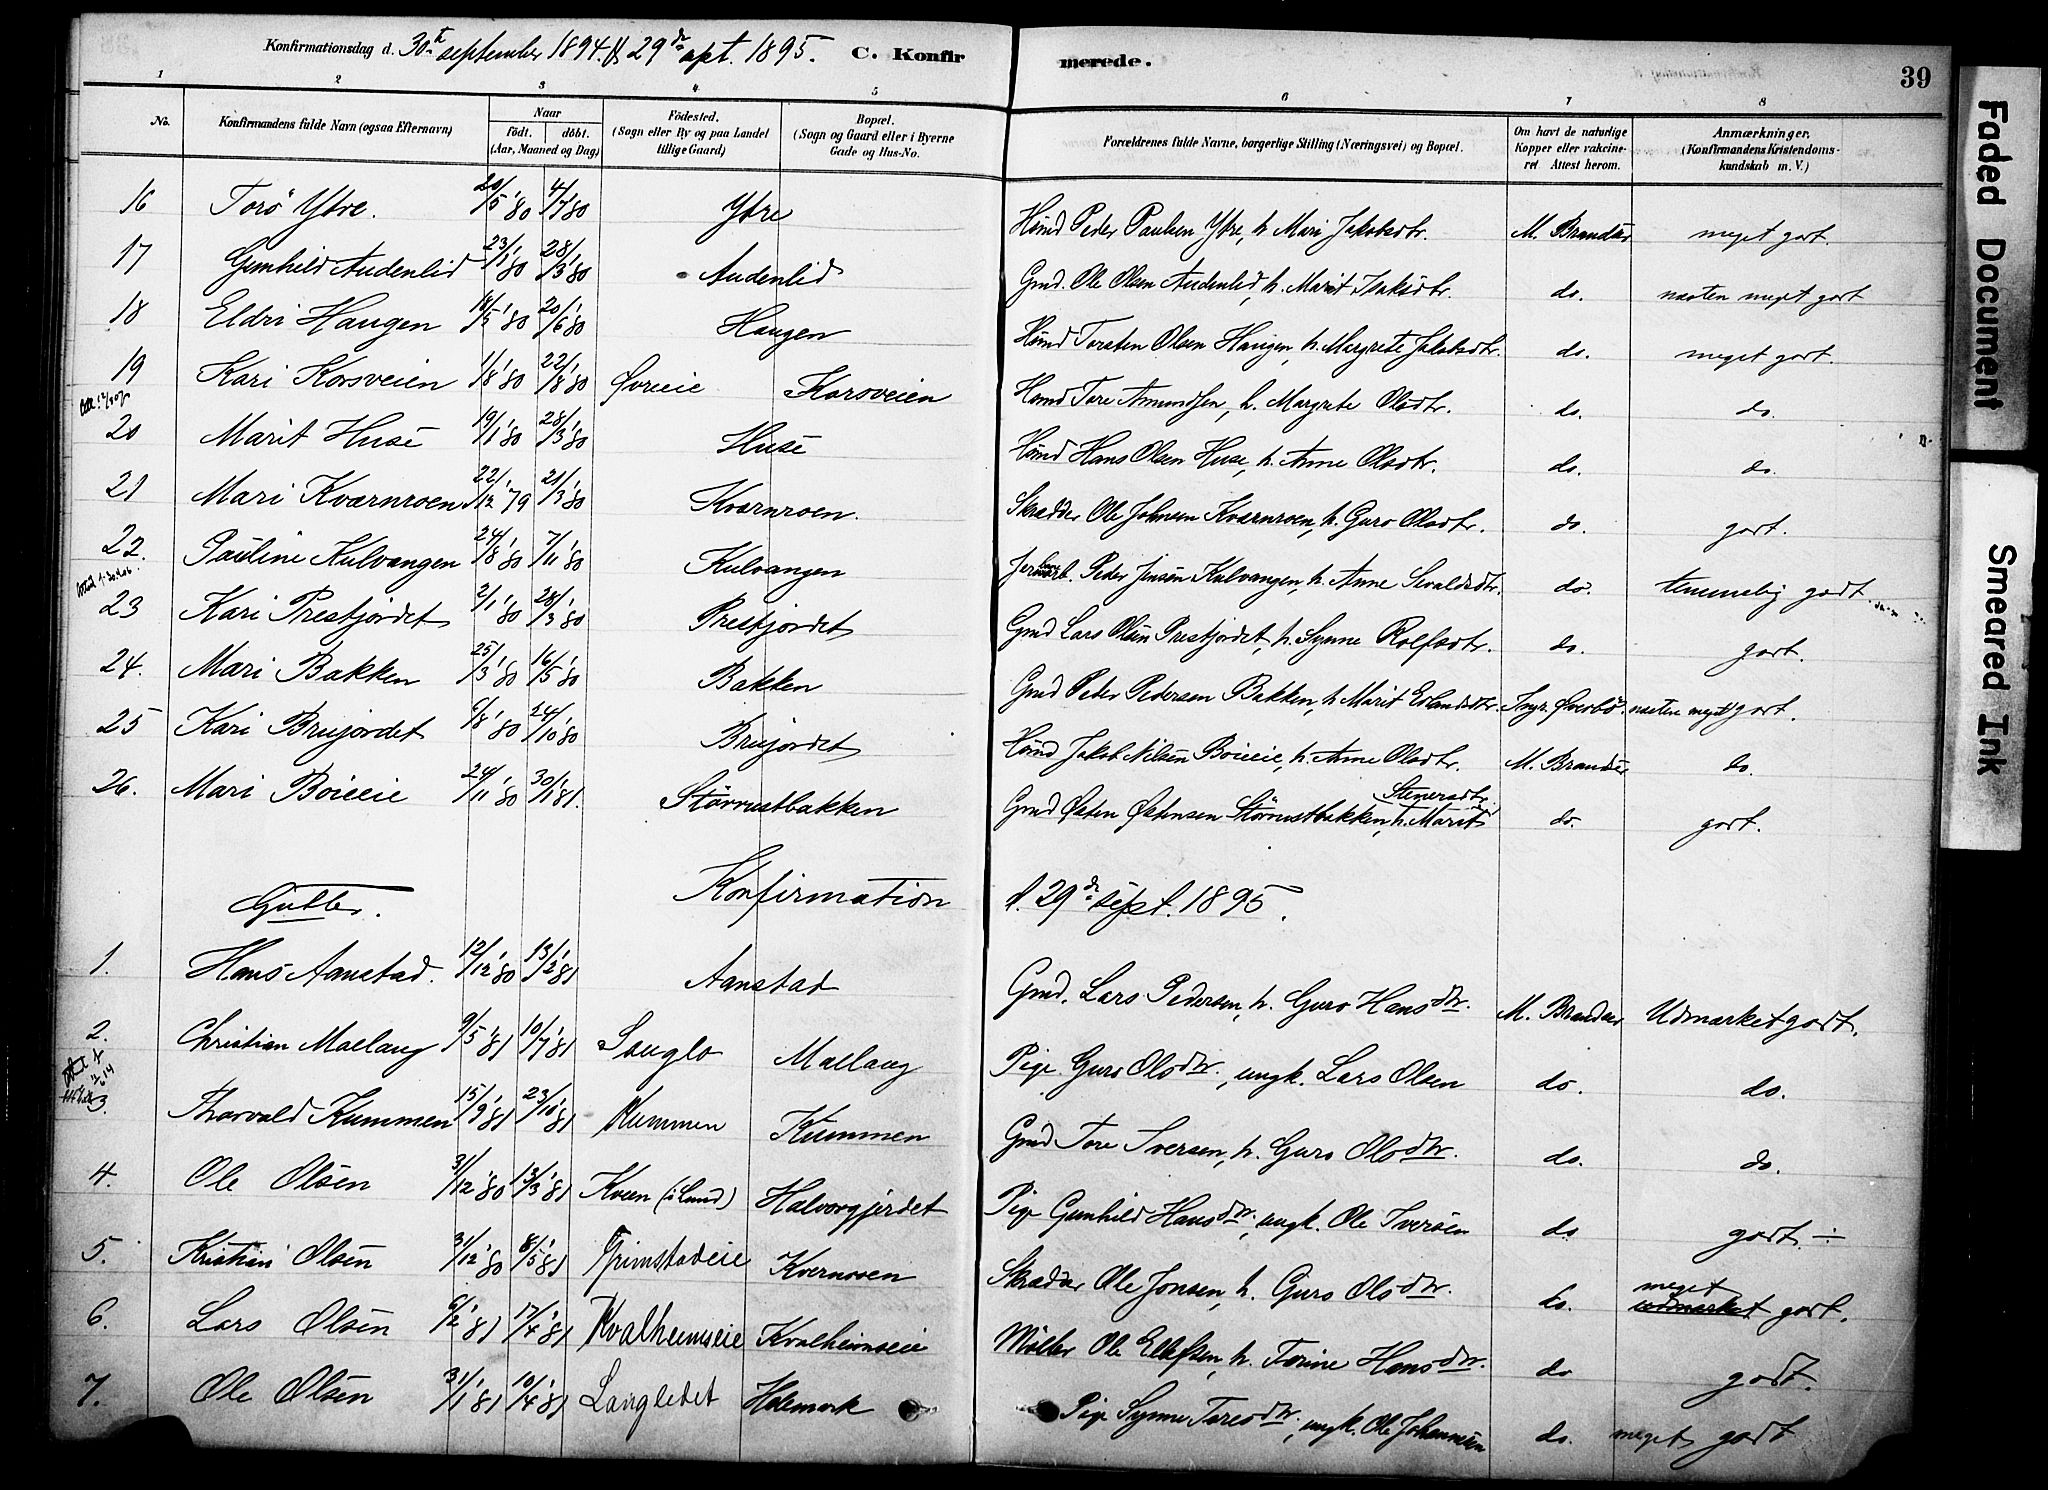 Konfirmationsdag d. 30te september 1894. & 29de sept. 1895. C. Konfirmerede. 39
1 2 3 4 5 6 7 8
No. Konfirmandens fulde Navn (ogsaa Efternavn) Naar födt. döbt. (Aar, Maaned og Dag) Födested. (Sogn eller By og paa Landet tillige Gaard) Bopæl. (Sogn og Gaard eller i Byerne Gade og Hus-No. Forældrenes fulde Navne, borgerlige Stilling (Næringsvei) og Bopæl. Om havt de naturlige Kopper eller vakcineret Attest herom. Anmærkninger. (Konfirmandens Kristendomskundskab m. V.)
16 Torö Ytre. 20/5 '80 4/7 '80 Ytre Hsmd Peder Paulsen Ytre, h. Mari Jakobsdtr. M. Brandær meget godt.
17 Gunhild Audenlid 23/1 '80 28/3 '80 Audenlid Gmd. Ole Olsen Audenlid, h. Marit Isaksdtr. do. næsten meget godt
18 Eldri Haugen 18/5 '80 20/6 '80 Haugen Hsmd Torsten Olsen Haugen, h. Margrete Jakobsdtr. do. meget godt.
19 Kari Korsveien 1/8 '80 22/8 '80 Øvreeie Korsveien Hsmd Tore Amundsen, h. Margrete Olsdtr. do. do.
20 Marit Huse 19/1 '80 28/3 '80 Huse Hsmd Hans Olsen Huse, h. Anne Olsdtr. do. do.
21 Mari Kværnroen 22/12 '79 21/3 '80 Kværnroen. Skrædder Ole Johnsen Kværnroen, h. Guro Olsdtr. do. godt.
22. Pauline Kulvangen 24/8 '80 7/11 '80 Kulvangen Jernbanearb. Peder Jensen Kulvangen, h. Anne Sevaldsdtr. do. temmelig godt
23 Kari Prestjordet 2/1 '80 28/3 '80 Prestjordet Gmd Lars Olsen Prestjordet, h. Synne Rolfsdtr. do. godt.
24. Mari Bakken 25/3 '80 16/5 '80 Bakken Gmd Peder Pedersen Bakken, h. Marit Erlandsdtr. Ingr. Øverbö. næsten meget godt.
25 Kari Brujordet 6/8 '80 24/10 '80 Brujordet Hsmd Jakob Nilsen Böieeie, h. Anne Olsdtr. M. Brandær do.
26. Mari Böieeie 24/11 '80 30/1 '81. Störrustbakken Gmd Østen Østensen Störrustbakken, h. Marit Stenersdtr. do. godt.
Gutter. Konfirmation d. 29de sept. 1895.
1. Hans Aanstad. 12/12 '80 13/2 '81 Aanstad Gmd. Lars Pedersen, h. Guro Hansdtr. M. Brandær Udmærket godt.
2. Christian Mællang 9/5 '81 10/7 '81 Sauglo Mællang Pige Guro Olsdtr., ungk. Lars Olsen do. do.
3. Thorvald Kummen 15/9 '81 23/10 '81 Kummen Kummen Gmd Tore Iversen, h. Guro Olsdtr. do. do.
4. Ole Olsen 31/12 '80 13/3 '81 Kveen (i Lund) Halvorgjerdet Pige Gunhild Hansdtr., ungk. Ole Iversen do godt. ÷
5. Kristian Olsen 31/12 '80 8/5 '81 Grimstadeie Kvernroen Skrædder Ole Jonsen, h. Guro Olsdtr. do. meget udmærket godt.
6. Lars Olsen 6/2 '81 17/4 '81 Kvalheimseie Kvalheimseie Möller Ole Ellefsen, h. Torine Hansdtr. do godt.
7. Ole Olsen 31/1 '81 10/4 '81 Langledet Holemork Pige Synne Toresdtr., ungk. Ole Johannesen do. meget godt
Faded Document
Smeared Ink